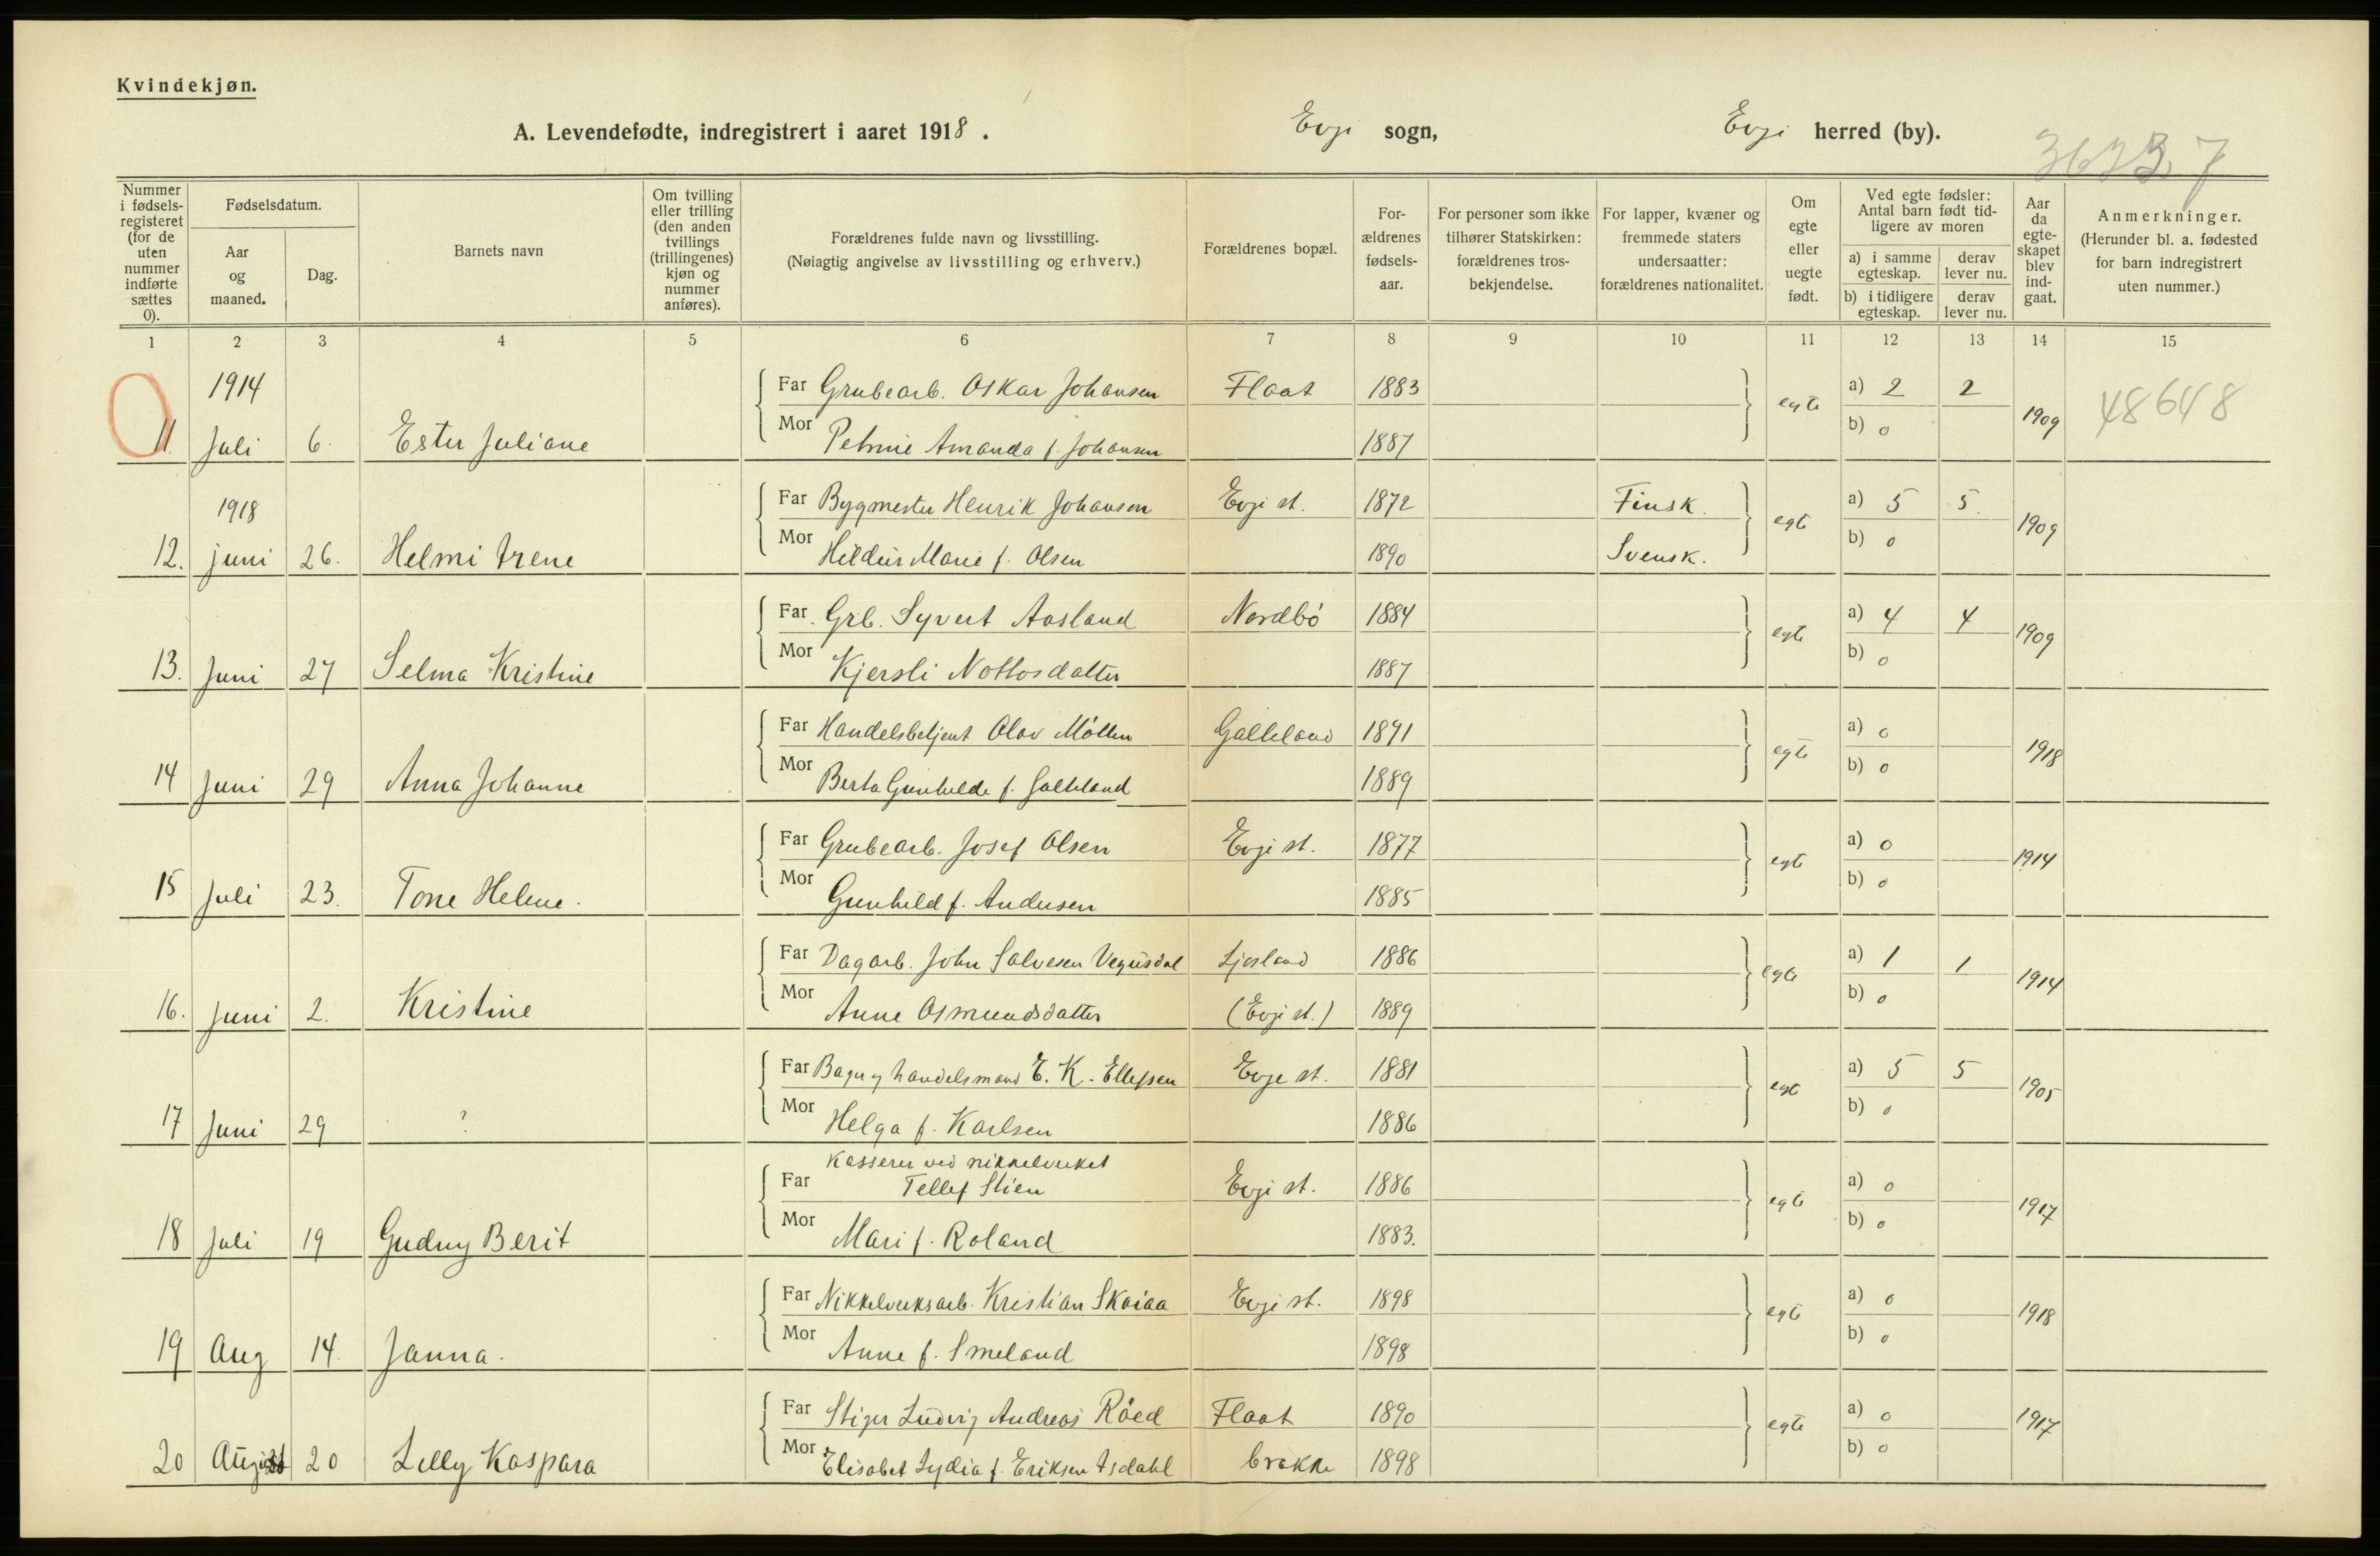 Kvindekjøn.
A. Levendefødte, indregistrert i aaret 1918. Evje sogn, Evje herred (by).
Nummer i fødselsregisteret (for de uten nummer indførte sættes 0).
Fødselsdatum.
Aar og maaned.
Dag.
Barnets navn
Om tvilling eller trilling (den anden tvillings (trillingenes) kjøn og nummer anføres).
Forældrenes fulde navn og livsstilling.
(Nøiagtig angivelse av livsstilling og erhverv.)
Forældrenes bopæl.
Forældrenes fødselsaar.
For personer som ikke tilhører Statskirken: forældrenes trosbekjendelse.
For lapper, kvæner og fremmede staters undersaatter: forældrenes nationalitet.
Om egte eller uegte født.
Ved egte fødsler: Antal barn født tidligere av moren
a) i samme egteskap. derav lever nu.
b) i tidligere egteskap. derav lever nu.
Aar da egteskapet blev indgaat.
Anmerkninger.
(Herunder bl. a. fødested for barn indregistrert uten nummer.)
1 2 3 4 5 6 7 8 9 10 11 12 13 14 15
1914 Far Grubearb. Oskar Johansen Flaat 1883 egte a) 2 2 1909 48648
11. Juli 6. Ester Juliane Mor Petrine Amanda f. Johansen 1887 b) 0
1918 Far Bygmester Henrik Johansen Evje st. 1872 Finsk. egte a) 5 5. 1909
12. juni 26. Helmi Irene Mor Hildur Marie f. Olsen 1890 Svensk. b) 0
Far Grb. Syvert Aasland Nordbö 1884 egte a) 4 4 1909
13. Juni 27 Selma Kristine Mor Kjersti Nottosdatter 1887 b) 0
Far Handelsbetjent Olav Möllen Galteland 1891 egte a) 0 1918
14 Juni 29 Anna Johanne Mor Berta Gunhilde f. Galteland 1889 b) 0
Far Grubearb. Josef Olsen Evje st. 1877 egte a) 0 1914
15 Juli 23. Tone Helene. Mor Gunhild f. Andersen 1885 b) 0
Far Dagarb. John Salvesen Vegusdal Ljosland 1886 egte a) 1 1 1914
16. Juni 2. Kristine Mor Anne Osmundsdatter (Evje st.) 1889 b) 0
Far Bager og handelsmand E. K. Ellefsen Evje st. 1881 egte a) 5 5 1905
17 Juni 29 ? Mor Helga f. Karlsen 1886 b) 0
Kasserer ved nikkelverket
Far Tellef Stien Evje st. 1886 egte a) 0 1917
18 Juli 19 Gudny Berit Mor Mari f. Roland 1883. b) 0
Far Nikkelverksarb. Kristian Skaiaa Evje st. 1898 egte a) 0 1918
19 Aug 14. Janna. Mor Anne f. Smeland 1898 b) 0
Far Stiger Ludvig Andreas Röed Flaat 1890 egte a) 0 1917
20 August 20 Lilly Kaspara Mor Elisabet Lydia f. Eriksen Isdahl brakke 1898 b) 0